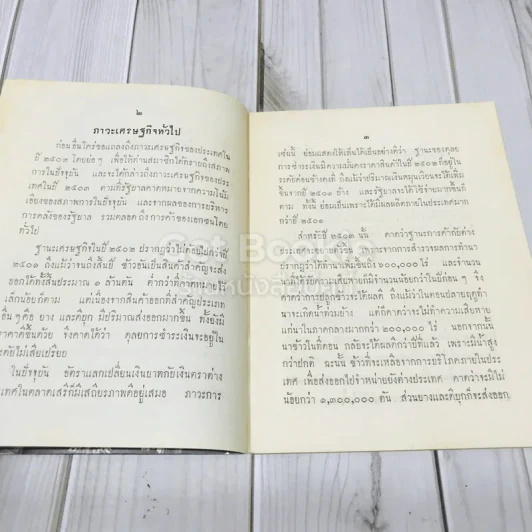 ๒
ภาวะเศรษฐกิจทั่วไป
ก่อนอื่นใคร่ขอแถลงถึงภาวะเศรษฐกิจของประเทศใน
ปี ๒๕๐๒ โดยย่อ ๆ เพื่อให้ท่านสมาชิกได้ทราบถึงสภาพ
การในปัจจุบัน และจะได้กล่าวถึงภาวะเศรษฐกิจของประ
เทศในปี ๒๕๐๓ ตามที่รัฐบาลคาดหมายจากความโน้ม
เอียงของสภาพการในปัจจุบัน และจากผลของการบริหาร
การคลังของรัฐบาล รวมตลอดถึงการค้าของเอกชนโดย
ทั่วไป
ฐานะเศรษฐกิจในปี ๒๕๐๒ ปรากฏว่าไม่ด้อยไปกว่าปี
๒๕๐๑ ถึงแม้ว่าจนถึงสิ้นปี ข้าวอันเป็นสินค้าสำคัญจะส่ง
ออกได้ทั้งสิ้นประมาณ ๑ ล้านตัน ต่ำกว่าที่คาดหมายไว้
เล็กน้อยก็ตาม แต่เนื่องจากสินค้าออกที่สำคัญประเภท
อื่น ๆ คือ ยาง และดีบุก มีปริมาณส่งออกมากขึ้น ทั้งยังมี
ราคาดีขึ้นด้วย จึงคาดได้ว่า ดุลยการชำระเงินจะอยู่ใน
ระดับไม่เสียเปรียบ
ในปัจจุบัน อัตราแลกเปลี่ยนเงินบาทกับเงินตราต่าง
ประเทศในตลาดเสรีก็มีเสถียรภาพดีอยู่เสมอ ภาวะการ
๓
เช่นนี้ ย่อมแสดงให้เห็นได้เป็นอย่างดีว่า ฐานะของดุลย
การชำระเงินมีความมั่นคงราคาสินค้าในปี ๒๕๐๒ ก็อยู่ใน
ระดับค่อนข้างคงที่ ถึงแม้ว่าปริมาณเงินหมุนเวียนจะได้เพิ่ม
ขึ้นจากปี ๒๕๐๑ บ้าง และรัฐบาลจะได้ใช้จ่ายมากขึ้นก็
ตาม ทั้งนี้ ย่อมเป็นเพราะได้มีผลผลิตภายในประเทศมาก
กว่าปี ๒๕๐๑
สำหรับปี ๒๕๐๓ นั้น คาดว่าฐานะการค้ากับต่าง
ประเทศคงจะดีขึ้น เพราะจากการสำรวจผลการทำนา
ปรากฏว่าได้ทำนาเพิ่มขึ้นถึง ๖๐๐,๐๐๐ ไร่ และจำนวน
คาดว่าการปลูกข้าวจะได้ผลดี ถึงแม้ว่าในตอนปลายฤดูทำ
นาจะเกิดน้ำท่วมบ้าง แต่ก็คาดว่าคงจะไม่ทำความเสียหาย
แก่นาในภาคกลางมากกว่า ๒๐๐,๐๐๐ ไร่ นอกจากนั้น
นาข้าวในที่ดอน กลับจะได้ผลดีกว่าปีที่แล้ว เพราะมีน้ำสูง
กว่าปกติ ฉะนั้น ข้าวที่จะเหลือจากการบริโภคภายในประ
เทศ เพื่อส่งออกไปจำหน่ายยังต่างประเทศ คาดว่าจะมีไม่
น้อยกว่า ๑,๓๐๐,๐๐๐ ตัน ส่วนยางและดีบุกก็จะส่งออก